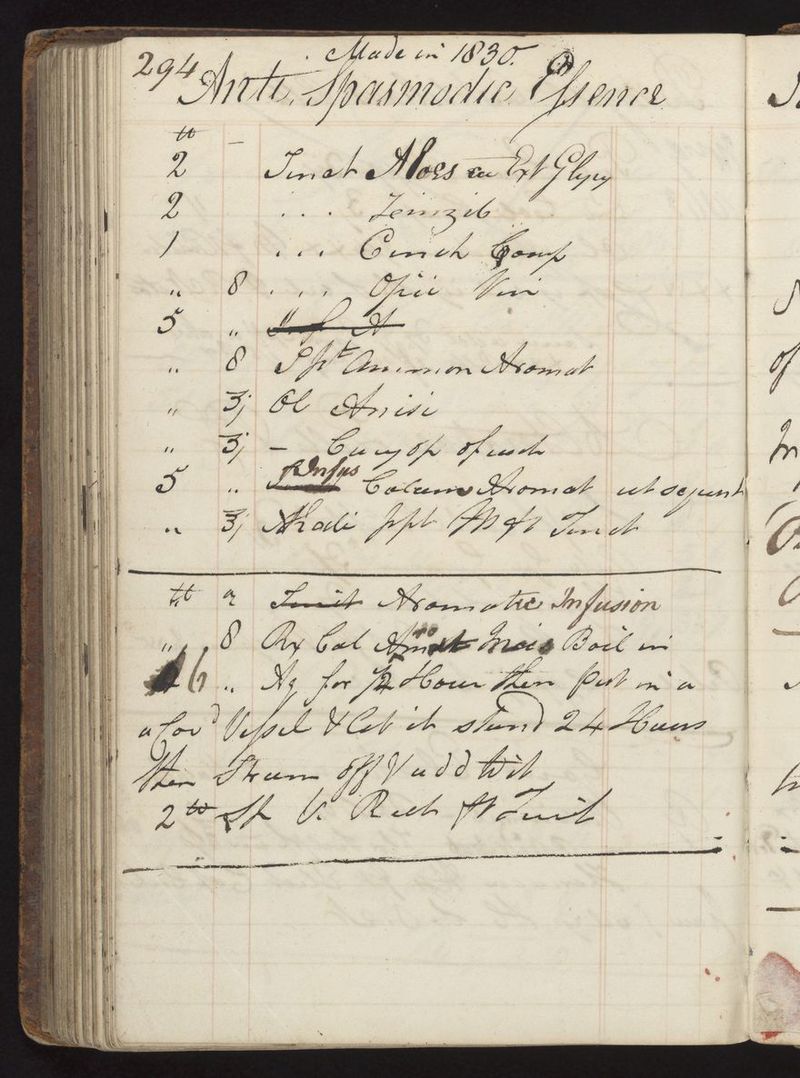 Made in 1830.
294 Anti Spasmodic Essence
lb
2 – Tinct Aloes cu Ext Glycy
2 . . . Zinzib
1 . . . Cinch Comp
" 8 . . . Opii Vin
5 "
" 8 Spt Ammon Aromat
" ʒj Ol Anisi
" ʒj –
5 " Infus Calam Aromat ut sequent
" ʒj Kali ppt M ft Tinct
lb Tinct Aromatic Infusion
" 8 Rx Cal Arom Incis Boil in
16 " Aq for ½ Hour then Put in a
a Cov'd Vessel & let it stand 24 Hours
then Strain off & add to it
2 lb Sp V. Rect ft Tinct